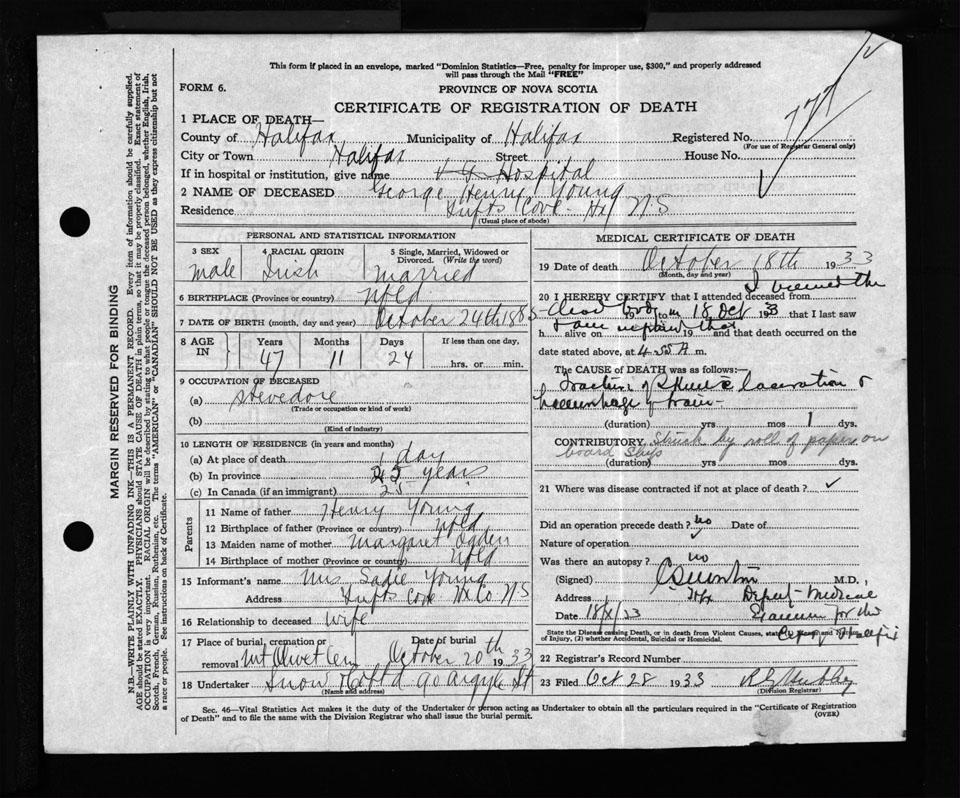 This form if placed in an envelope, marked "Dominion Statistics—Free, penalty for improper use, $300," and properly addressed
will pass through the Mail "FREE"
FORM 6.
PROVINCE OF NOVA SCOTIA
CERTIFICATE OF REGISTRATION OF DEATH
1 PLACE OF DEATH—
County of Halifax Municipality of Halifax Registered No. 777
(For use of Registrar General only)
City or Town Halifax Street House No.
If in hospital or institution, give name V G Hospital
2 NAME OF DECEASED George Henry Young
Residence Tufts Cove - Hx N.S
(Usual place of abode)
PERSONAL AND STATISTICAL INFORMATION
3 SEX 4 RACIAL ORIGIN 5 Single, Married, Widowed or
Divorced. (Write the word)
Male Irish Married
6 BIRTHPLACE (Province or country) Nfld
7 DATE OF BIRTH (month, day and year) October 24th 1885
8 AGE IN Years Months Days If less than one day,
47 11 24 hrs. or min.
9 OCCUPATION OF DECEASED
(a) Stevedore
(Trade or occupation or kind of work)
(b)
(Kind of industry)
10 LENGTH OF RESIDENCE (in years and months)
(a) At place of death 1 day
(b) In province 25 years
(c) In Canada (if an immigrant) 25
Parents
11 Name of father Henry Young
12 Birthplace of father (Province or country) Nfld
13 Maiden name of mother Margaret Ogden
14 Birthplace of mother (Province or country) Nfld
15 Informant's name Mrs Sadie Young
Address Tufts Cove Hx Co N-S
16 Relationship to deceased Wife
17 Place of burial, cremation or removal Mt Olivet Cem Date of burial October 20th 1933
18 Undertaker Snow & Co Ltd 90 Argyle St
(Name and address)
MEDICAL CERTIFICATE OF DEATH
19 Date of death October 18th 1933
(Month, day and year)
I viewed the
20 I HEREBY CERTIFY that I attended deceased from
dead body to on 18 Oct 1933 that I last saw
h alive on 19 and that death occurred on
date stated above, at 4.55 A m.
The CAUSE of DEATH was as follows:—
Fracture of Skull c laceration &
haemorrhage of brain-
(duration) yrs mos 1 dys.
CONTRIBUTORY Struck by roll of paper on
board ship
(duration) yrs. mos dys.
21 Where was disease contracted if not at place of death?
Did an operation precede death? no Date of
Nature of operation
Was there an autopsy? no
(Signed) M.D.,
Address Hfx Deputy-Medical
Date 18/X/33 Examiner for the
City of Halifax
State the Disease causing Death, or in death from Violent Causes, state and Nature
of Injury, (2) whether Accidental, Suicidal or Homicidal.
22 Registrar's Record Number
23 Filed Oct 28 1933
(Division Registrar)
Sec. 46—Vital Statistics Act makes it the duty of the Undertaker or person acting as Undertaker to obtain all the particulars required in the "Certificate of Registration
of Death" and to file the same with the Division Registrar who shall issue the burial permit.
(OVER)
MARGIN RESERVED FOR BINDING
N.B—WRITE PLAINLY WITH UNFADING INK—THIS IS A PERMANENT RECORD. Every item of information should be carefully supplied.
AGE should be stated EXACTLY. PHYSICIANS should STATE CAUSE OF DEATH in plain terms, so that it may be properly classified. Exact statement of
OCCUPATION is very important. RACIAL ORIGIN will be described by stating to what people or tongue the deceased person belonged, whether English, Irish,
Scotch, French, German, Russian, Ruthenian, etc. The terms "AMERICAN" or "CANADIAN" SHOULD NOT BE USED as they express citizenship but not
a race or people. See instructions on back of Certificate.